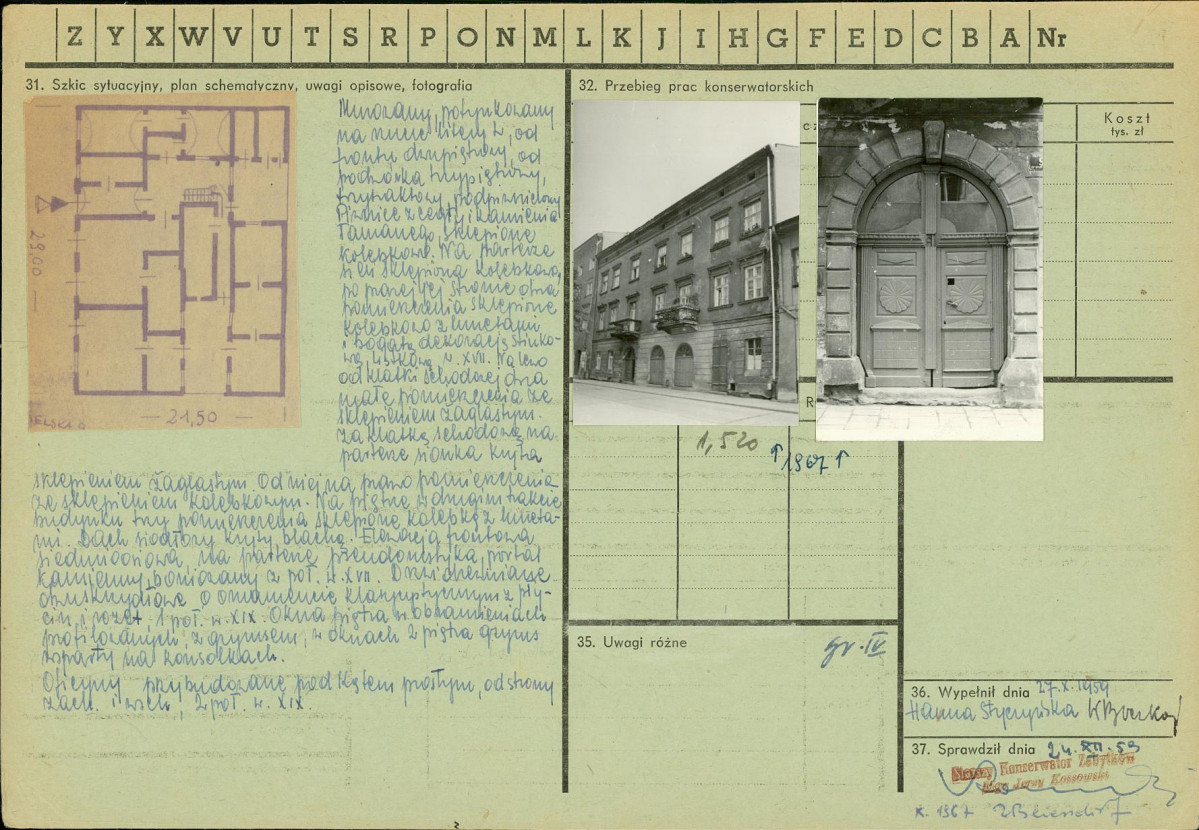 Z Y X W V U T S R P O N M L K J I H G F E D C B A Nr
31. Szkic sytuacyjny, plan schematyczny, uwagi opisowe, fotografia
29,00
21,50
Murowany, potynkowany
na rzucie litery L, od
frontu dwupiętrowy, od
podwórka trzypiętrowy,
trzytraktowy, podpiwniczony
Piwnice z cegły i kamienia
łamanego, sklepione
kolebkowo. Na parterze
sień sklepiona kolebkowo,
po prawej stronie dwa
pomieszczenia sklepione
kolebkowo z lunetami
i bogatą dekoracją stiuko-
wą, w. XVII. Na lewo
od klatki schodowej dwa
małe pomieszczenia ze
sklepieniem żaglastym.
Za klatką schodową na
parterze sionka kryta
sklepieniem żaglastym. Od niej na prawo pomieszczenia
ze sklepieniem kolebkowym. Na piętrze w drugim trakcie
budynku trzy pomieszczenia sklepione kolebką z luneta-
mi. Dach siodłowy kryty blachą. Elewacja frontowa
siedmioosiowa, na parterze portal
kamienny, boniowany z poł. w. XVII. Drzwi drewniane
dwuskrzydłowe o ornamencie klasycystycznym z pły-
cin i rozet, 1 poł. w. XIX. Okna piętra w obramieniach
profilowanych, z gzymsem, w oknach 2 piętra gzyms
wsparty na konsolkach.
Oficyny przybudowane pod kątem prostym, od strony
zach. i wsch, 2 poł. w. XIX.
32. Przebieg prac konserwatorskich
Koszt
tys. zł
R
1,520
↑1967↑
35. Uwagi różne
gr. IV
36. Wypełnił dnia 27.X.1959
Hanna Styczyńska
37. Sprawdził dnia 24.XII.59
Konserwator Zabytków
Mgr Jerzy Kossowski
X. 1967